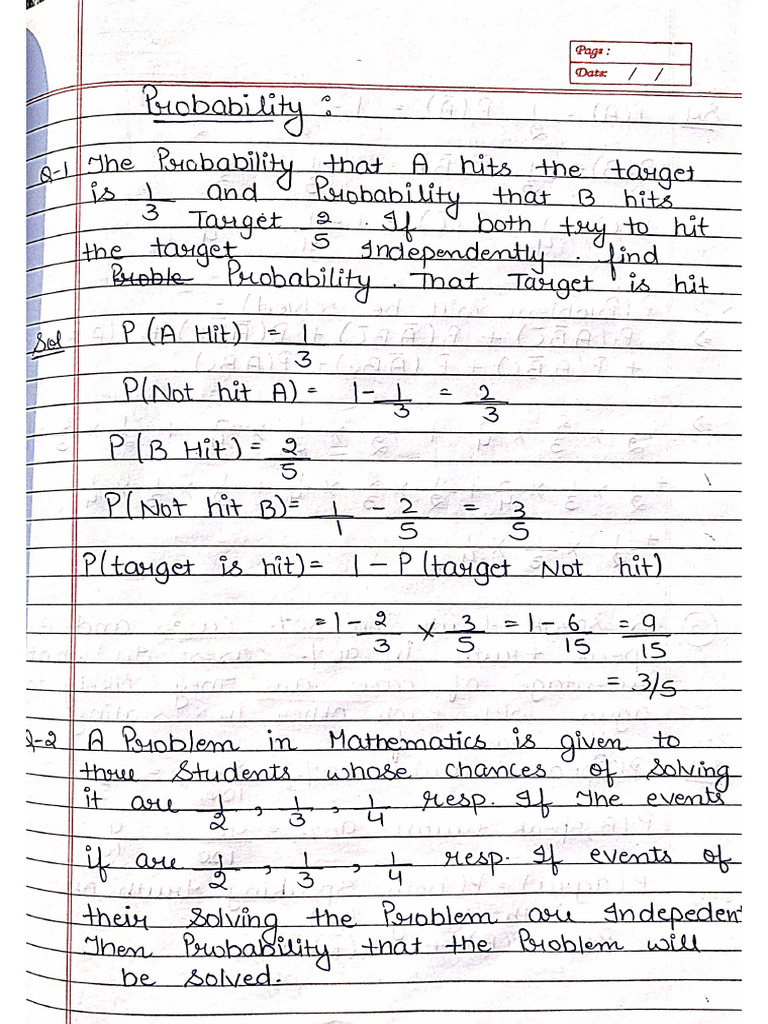 Page :
Date: / /
Probability :
Q-1 The Probability that A hits the target
is 1/3 and Probability that B hits
Target 2/5 . If both try to hit
the target Independently . find
Proble Probability . That Target is hit
Sol P(A Hit) = 1/3
P(Not hit A) = 1 - 1/3 = 2/3
P(B Hit) = 2/5
P(Not hit B) = 1/1 - 2/5 = 3/5
P(target is hit) = 1 - P(target Not hit)
= 1 - 2/3 × 3/5 = 1 - 6/15 = 9/15
= 3/5
Q-2 A Problem in Mathematics is given to
three Students whose chances of Solving
it are 1/2 , 1/3 , 1/4 resp. If The events
if are 1/2 , 1/3 , 1/4 resp. If events of
their Solving the Problem are Indepeden
Then Probability that the Problem will
be Solved.